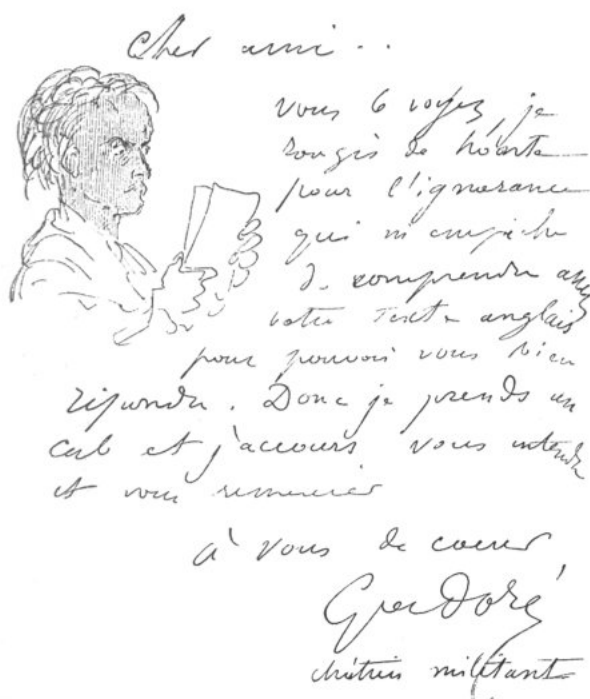 Cher ami . .
vous le voyez, je
rougis de honte
pour l'ignorance
qui m'empêche
de comprendre assez
votre texte anglais
pour pouvoir vous bien
répondre. Donc je prends un
cab et j'accours vous entendre
et vous remercier
à vous de coeur
Gve Doré
chrétien militant